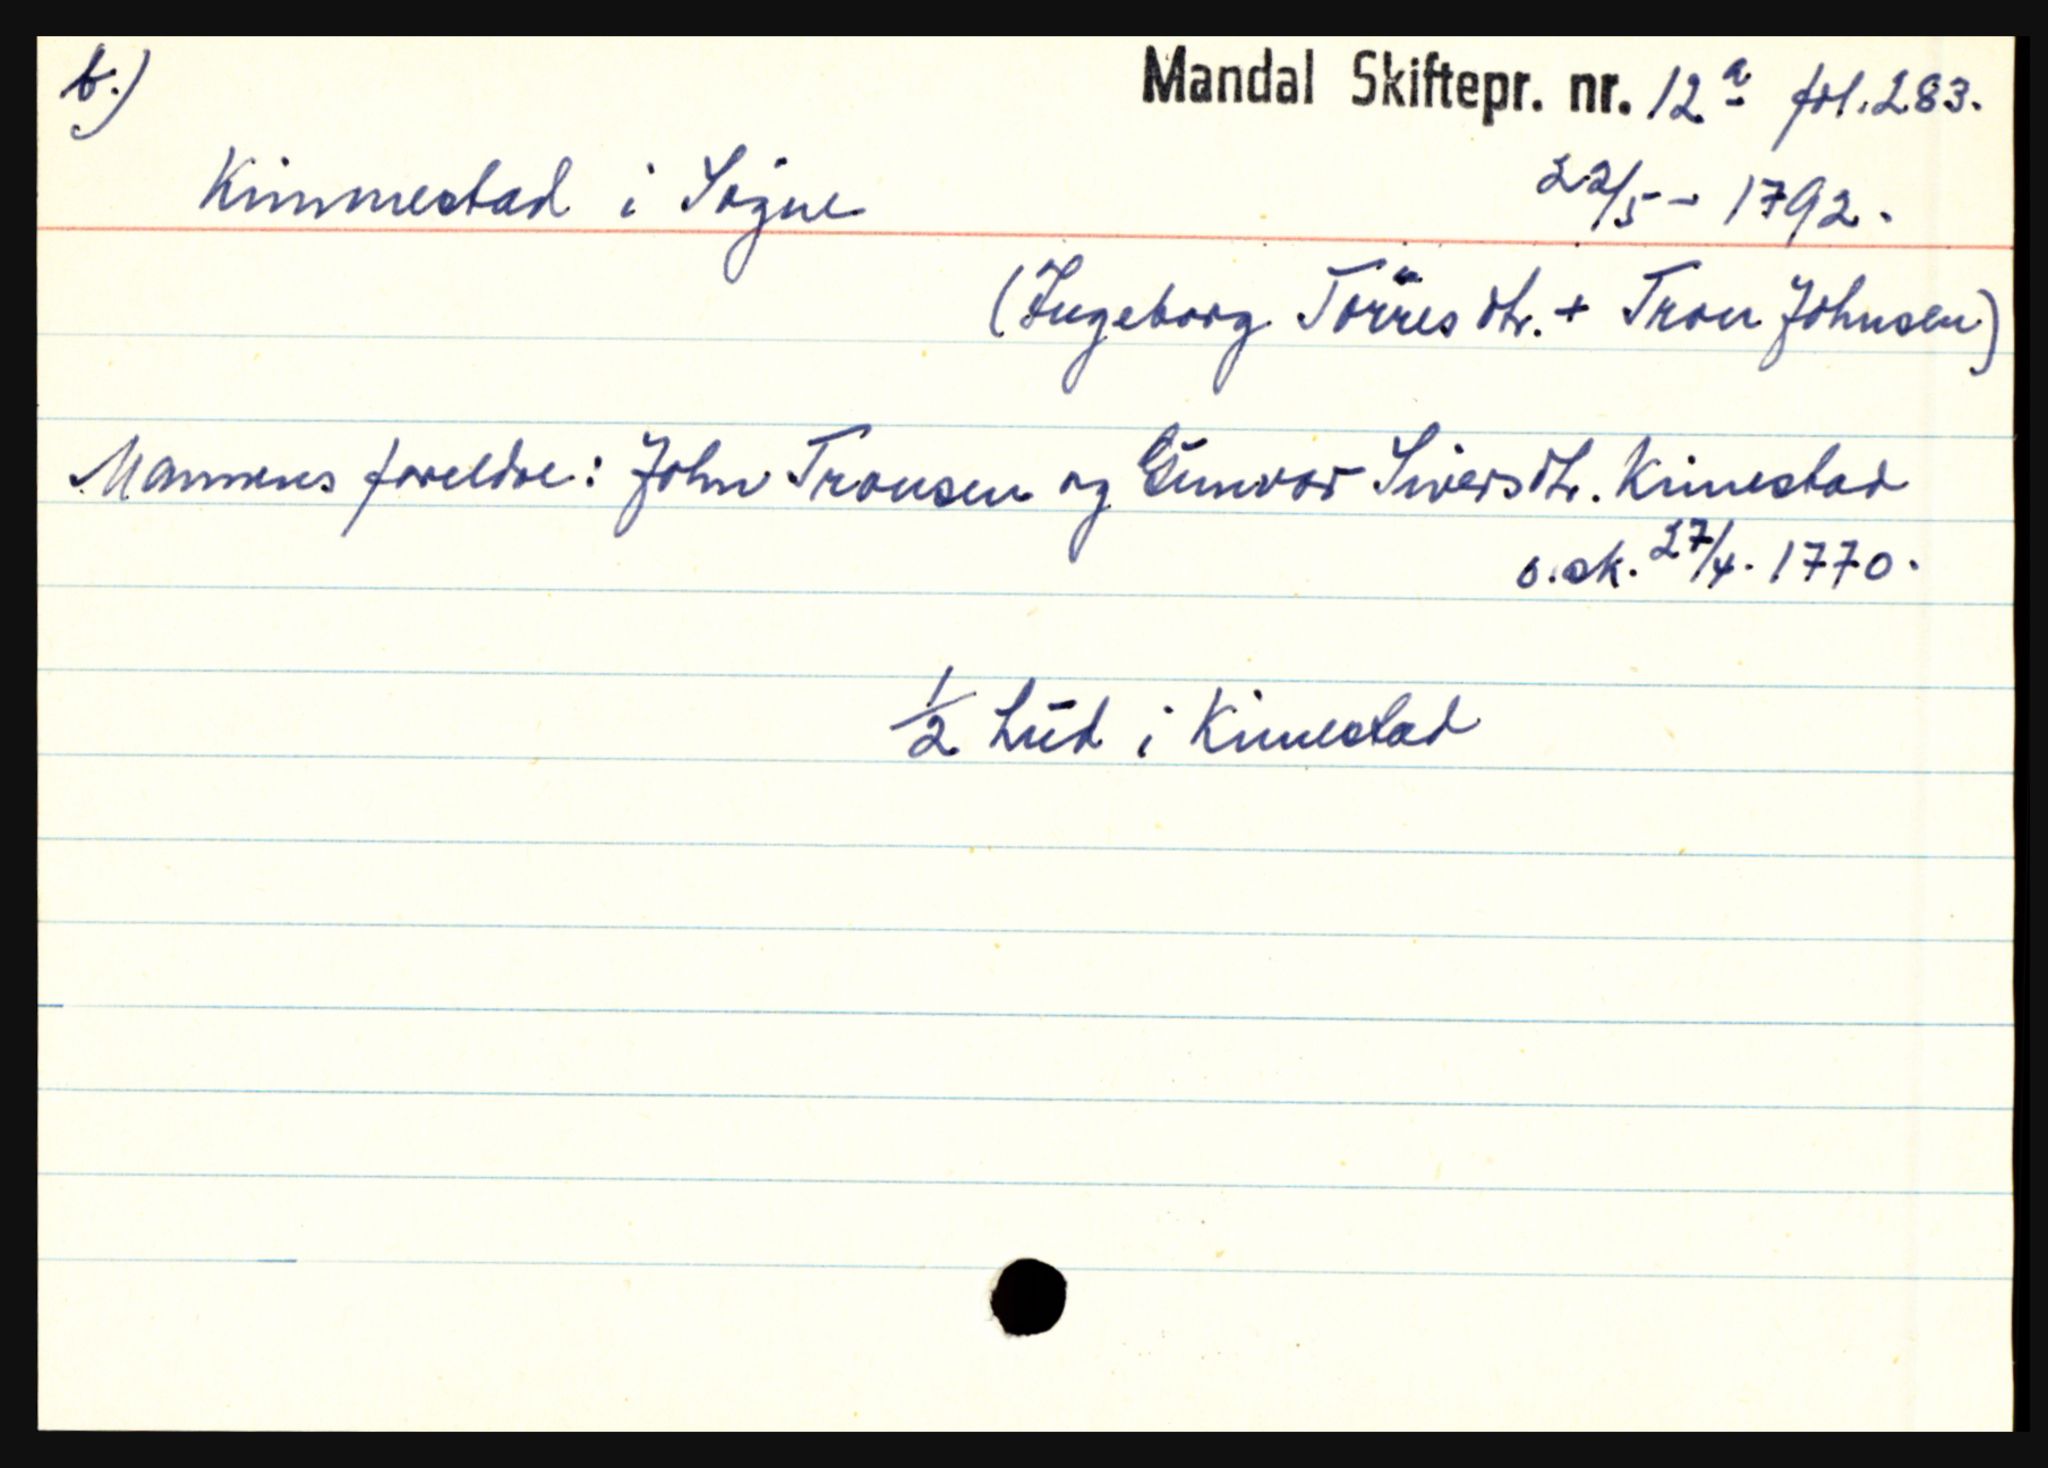 b.) Mandal Skiftepr. nr. 12a fol. 283.
Kimmestad i Søgne 22/5 - 1792.
(Ingeborg Tørresdtr. + Tron Johnsen)
Mannens foreldre: John Tronsen og Gunvor Siversdtr. Kimestad
s. sk. 27/4. 1770.
1/2 hud i Kimestad